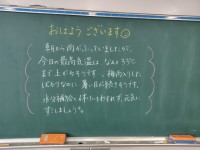 おはよう ございます☺
朝から雨がふっていましたが、
今日の最高気温は なんと35℃
まで上がるそうです。梅雨入りした
ばかりなのに 暑い日が続きそうです。
水分補給を 忘れず、元気に
すごしましょうね。